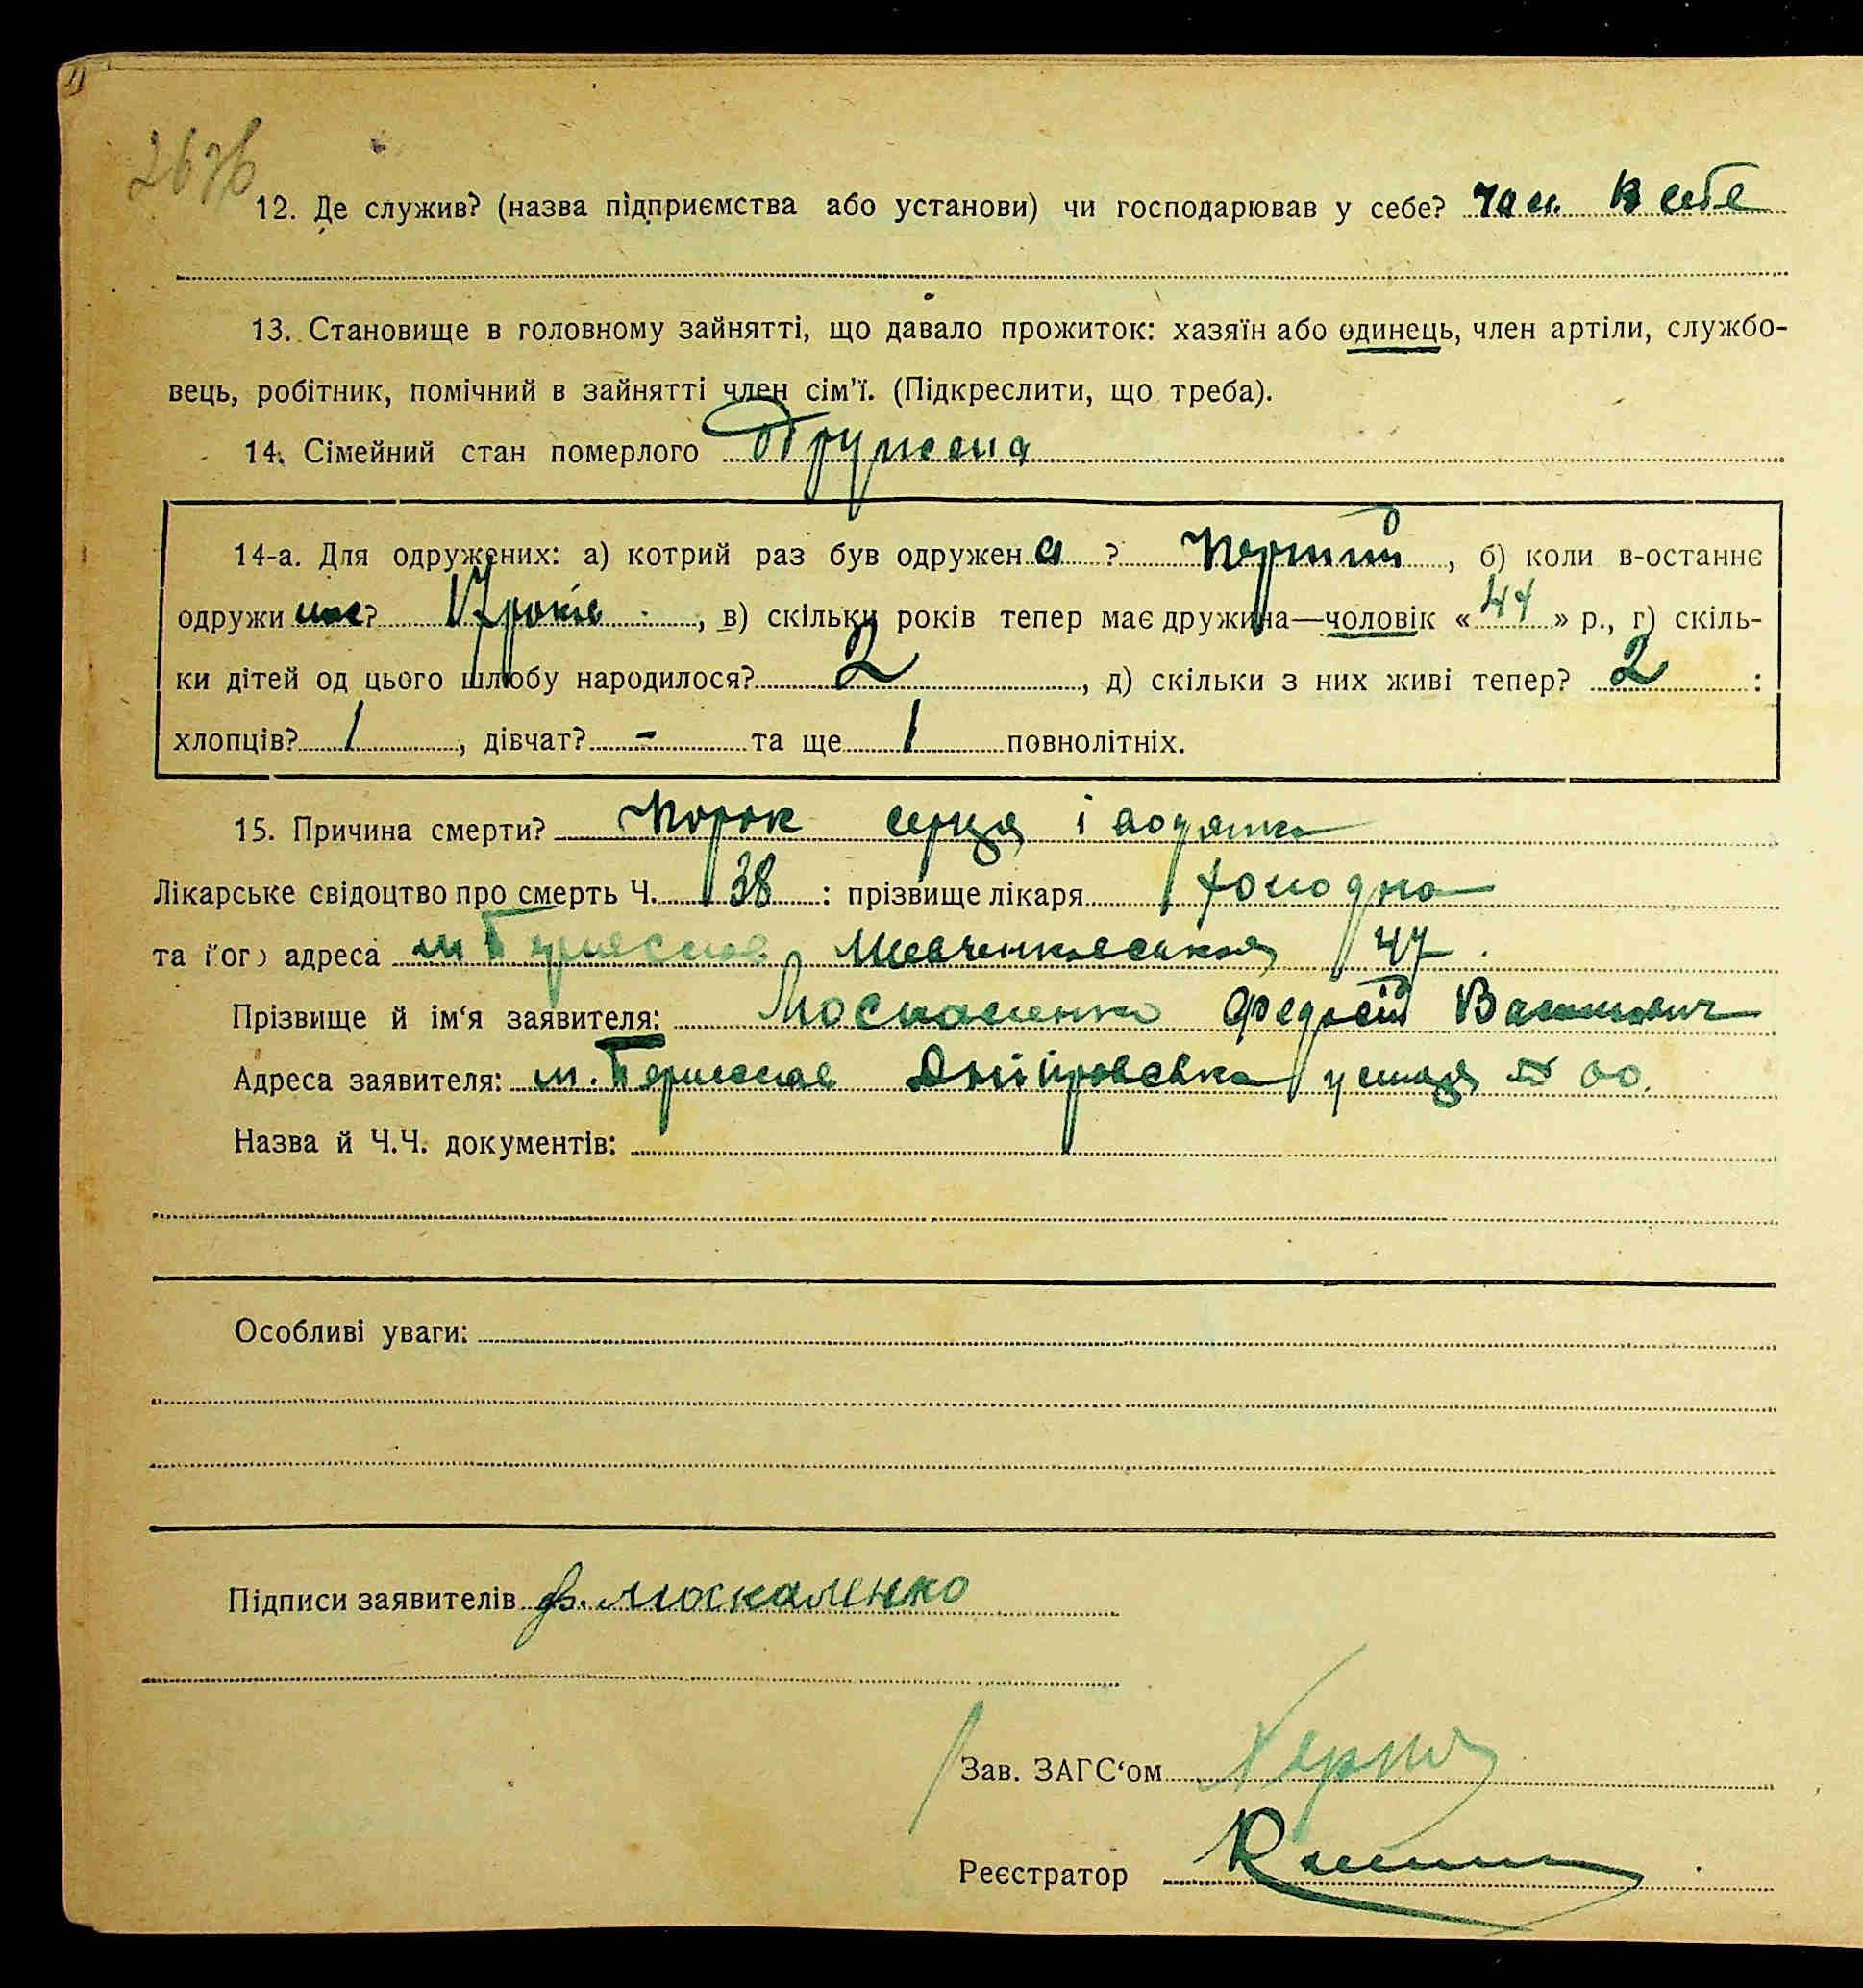 2676
12. Де служив? (назва підприємства або установи) чи господарював у себе? в себе
13. Становище в головному зайнятті, що давало прожиток: хазяїн або одинець, член артіли, службо-
вець, робітник, помічний в зайнятті член сім’ї. (Підкреслити, що треба).
14. Сімейний стан померлого Одружена
14-а. Для одружених: а) котрий раз був одружена? Перший, б) коли в-останнє
одружилас? 17 років, в) скільки років тепер має дружина—чоловік «44» р., г) скіль-
ки дітей од цього шлюбу народилося? 2, д) скільки з них живі тепер? 2:
хлопців? 1, дівчат? - та ще 1 повнолітніх.
15. Причина смерти? Порок серця і водянка
Лікарське свідоцтво про смерть Ч. 38: прізвище лікаря
та його адреса м Берислав Шевченковська 47
Прізвище й ім‘я заявителя: Москаленко Федосій Васильович
Адреса заявителя: м. Берислав Дніпровська улиця
Назва й Ч.Ч. документів:
Особливі уваги:
Підписи заявителів Ф. Москаленко
Зав. ЗАГС‘ом
Реєстратор